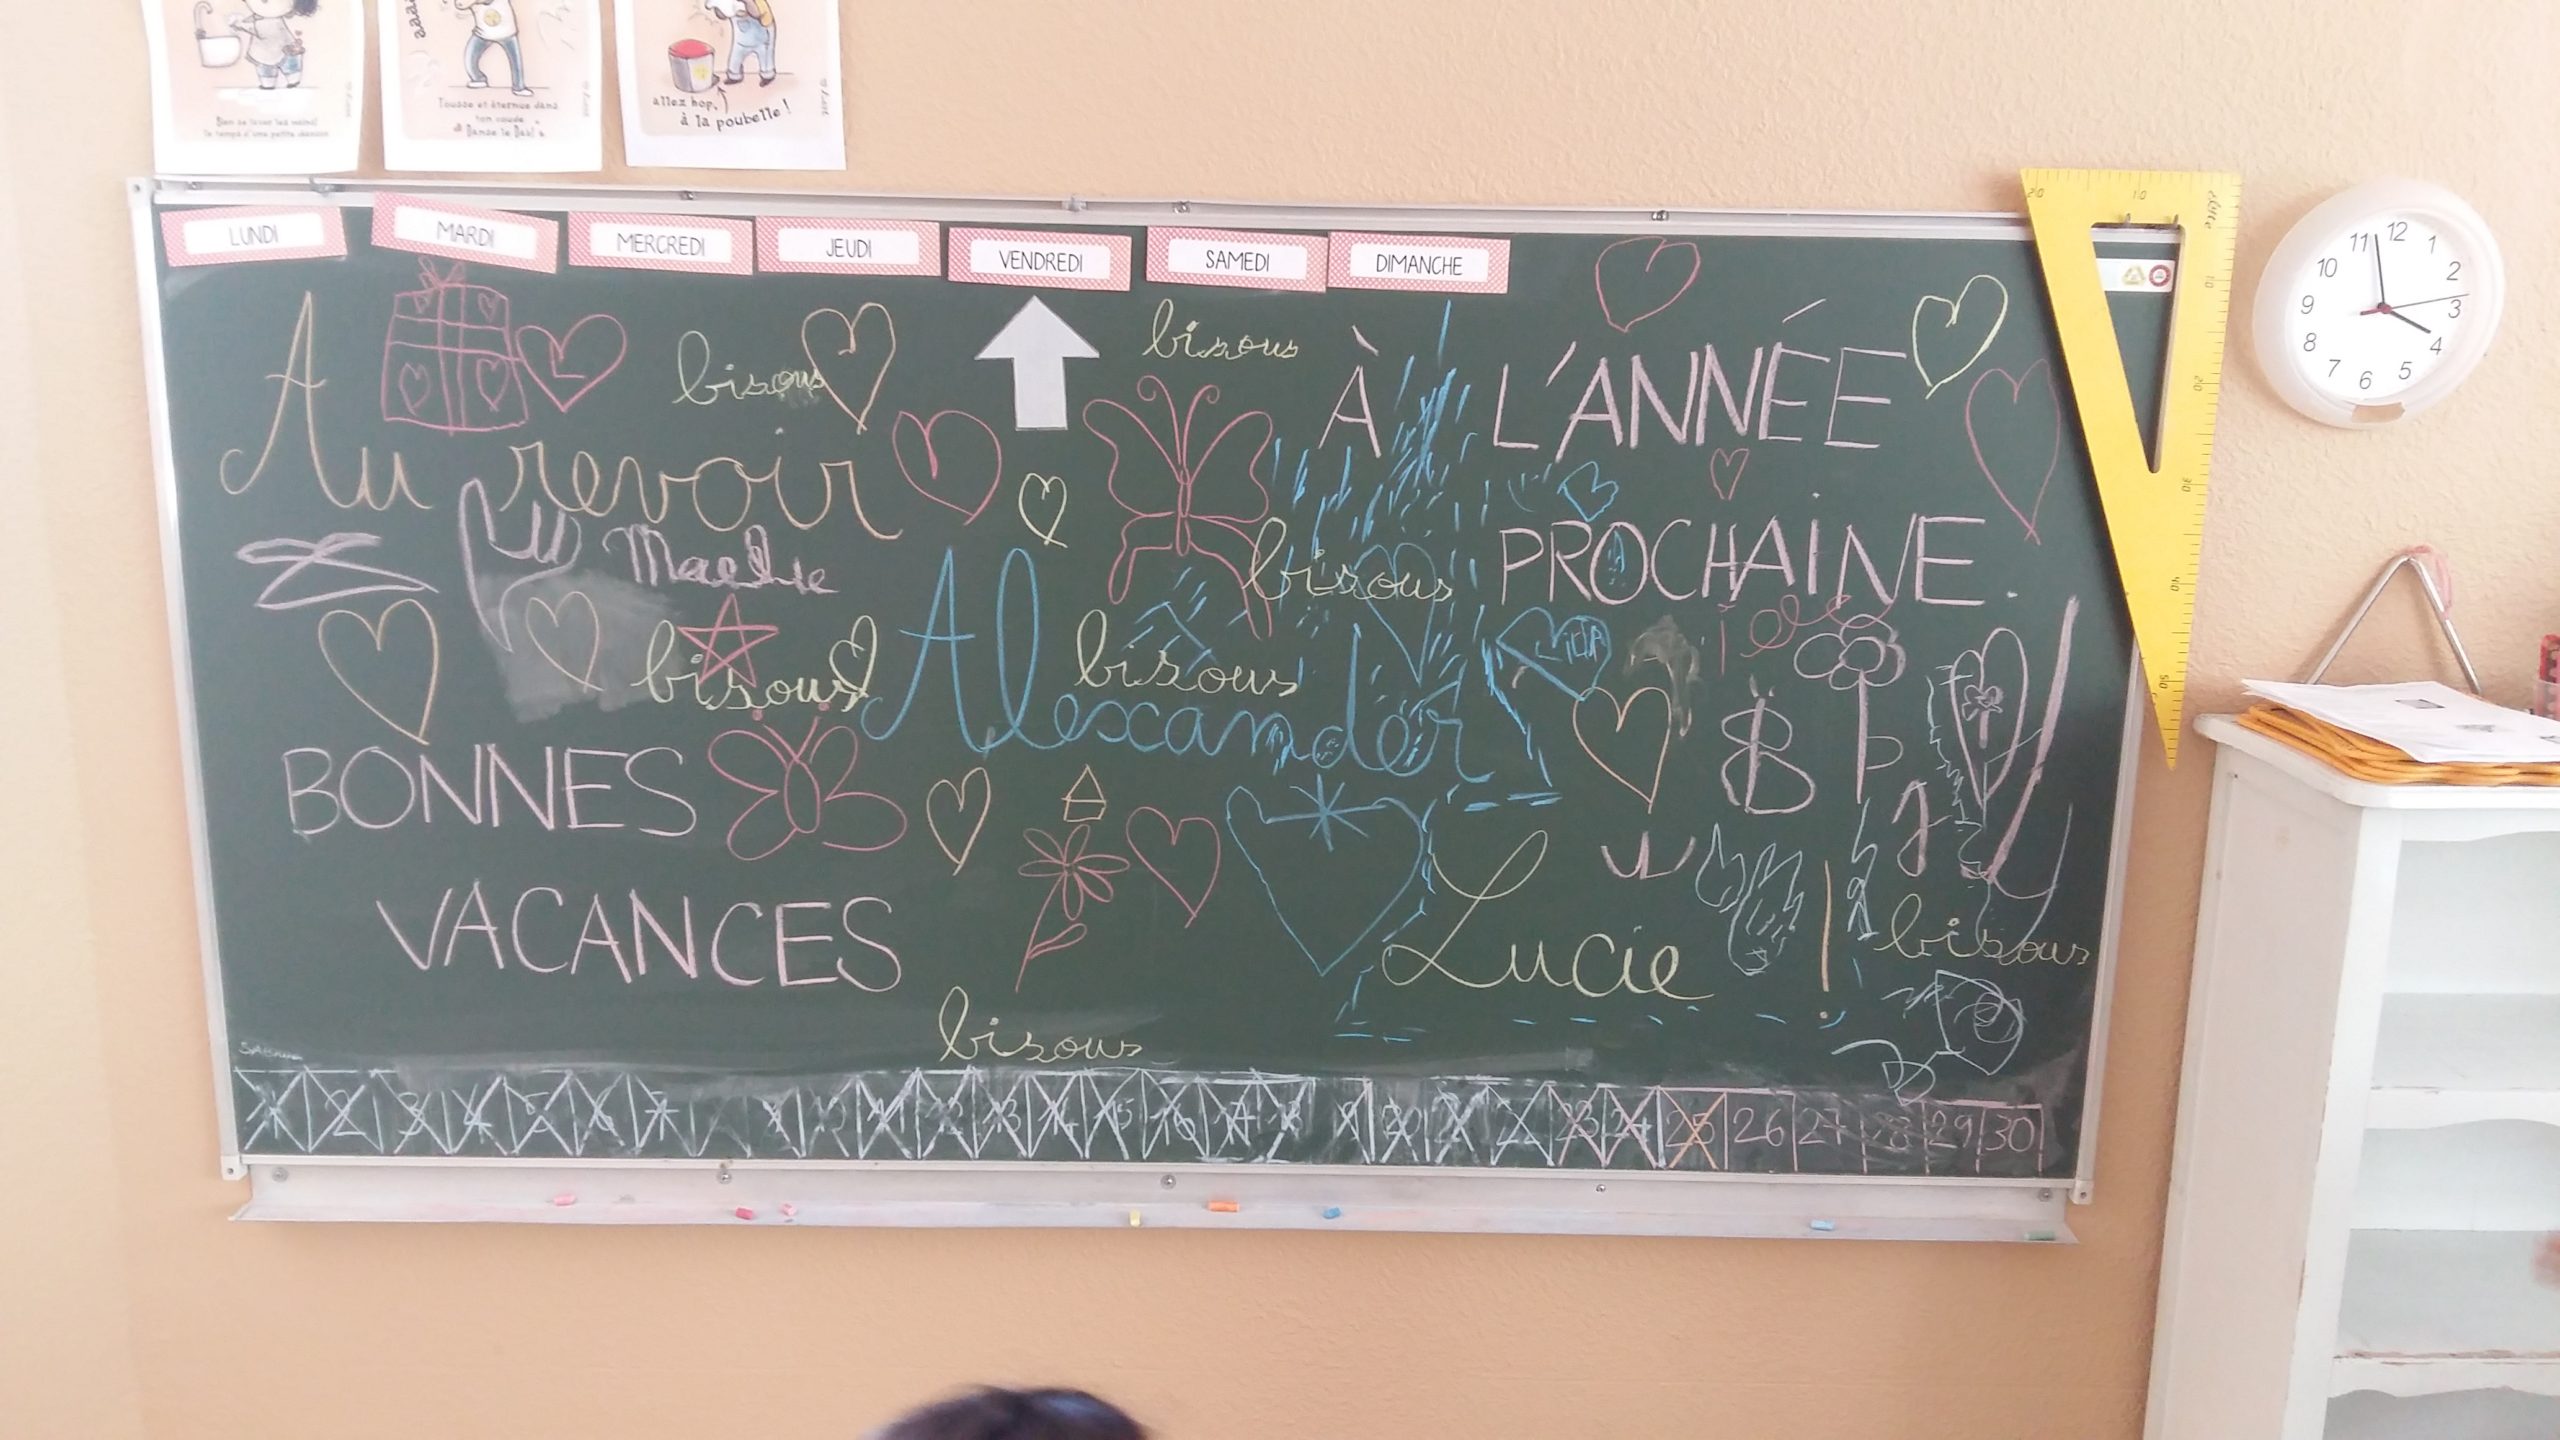 Bien se laver les mains!
le temps d'une petite chanson
Tousse et éternue dans
ton coude
Danse le Dab!
allez hop,
à la poubelle!
LUNDI
MARDI
MERCREDI
JEUDI
VENDREDI
SAMEDI
DIMANCHE
Au revoir
bisous
bisous
À L'ANNÉE
PROCHAINE.
bisous
bisous
Alexander
bisous
BONNES
VACANCES
Lucie
bisous
bisous
1 2 3 4 5 6 7 11 12 13 14 15 16 17 18 19 20 21 22 23 24 25 26 27 28 29 30
12 1 2 3 4 5 6 7 8 9 10 11